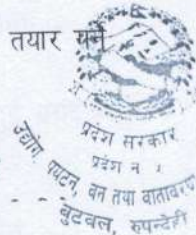 तयार गर्ने
प्रदेश सरकार
प्रदेश नं ५
उद्योग, पर्यटन, वन तथा वातावरण
बुटवल, रुपन्देही